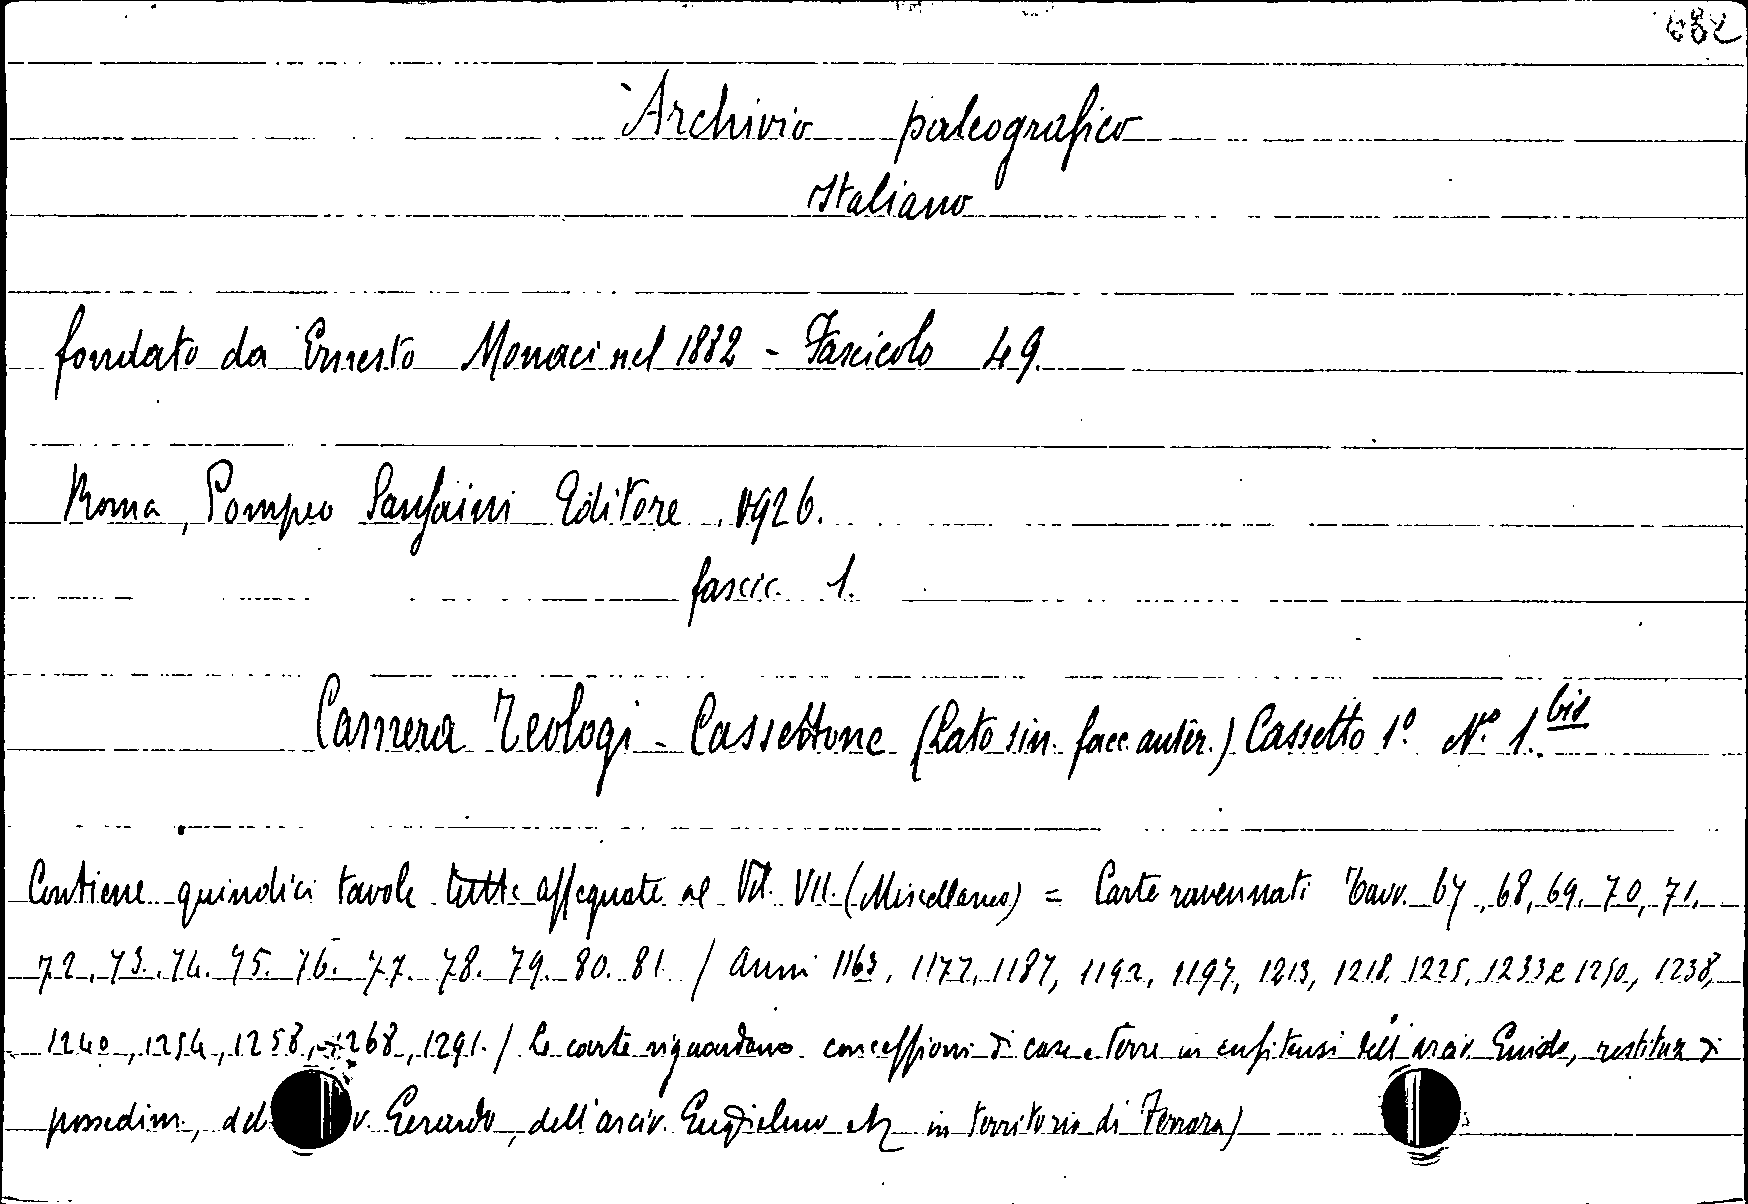 682
Archivio paleografico
Italiano
fondato da Ernesto Monaci nel 1882 - Fascicolo 49.
Roma, Pompeo Sansaini Editore . 1926.
fascic. 1.
Camera Teologi - Cassettone (Lato sin. facc. anter.) Cassetto 1º Nº 1. bis
Contiene quindici tavole tutte assegnate al Vol. VII. (Miscellanea) = Carte ravennati Tavv. 67, 68, 69. 70, 71.
72. 73. 74. 75. 76. 77. 78. 79. 80. 81. / Anni 1163, 1177, 1187, 1192, 1197, 1213, 1218, 1225, 1233 e 1250, 1238,
1240, 1254, 1258, 1268, 1291. / Le carte riguardano concessioni di case e terre in enfiteusi dell'arciv. Guido, restituz. di
possedim., del v. Gerardo, dell'arciv. Guglielmo in territorio di Ferrara)